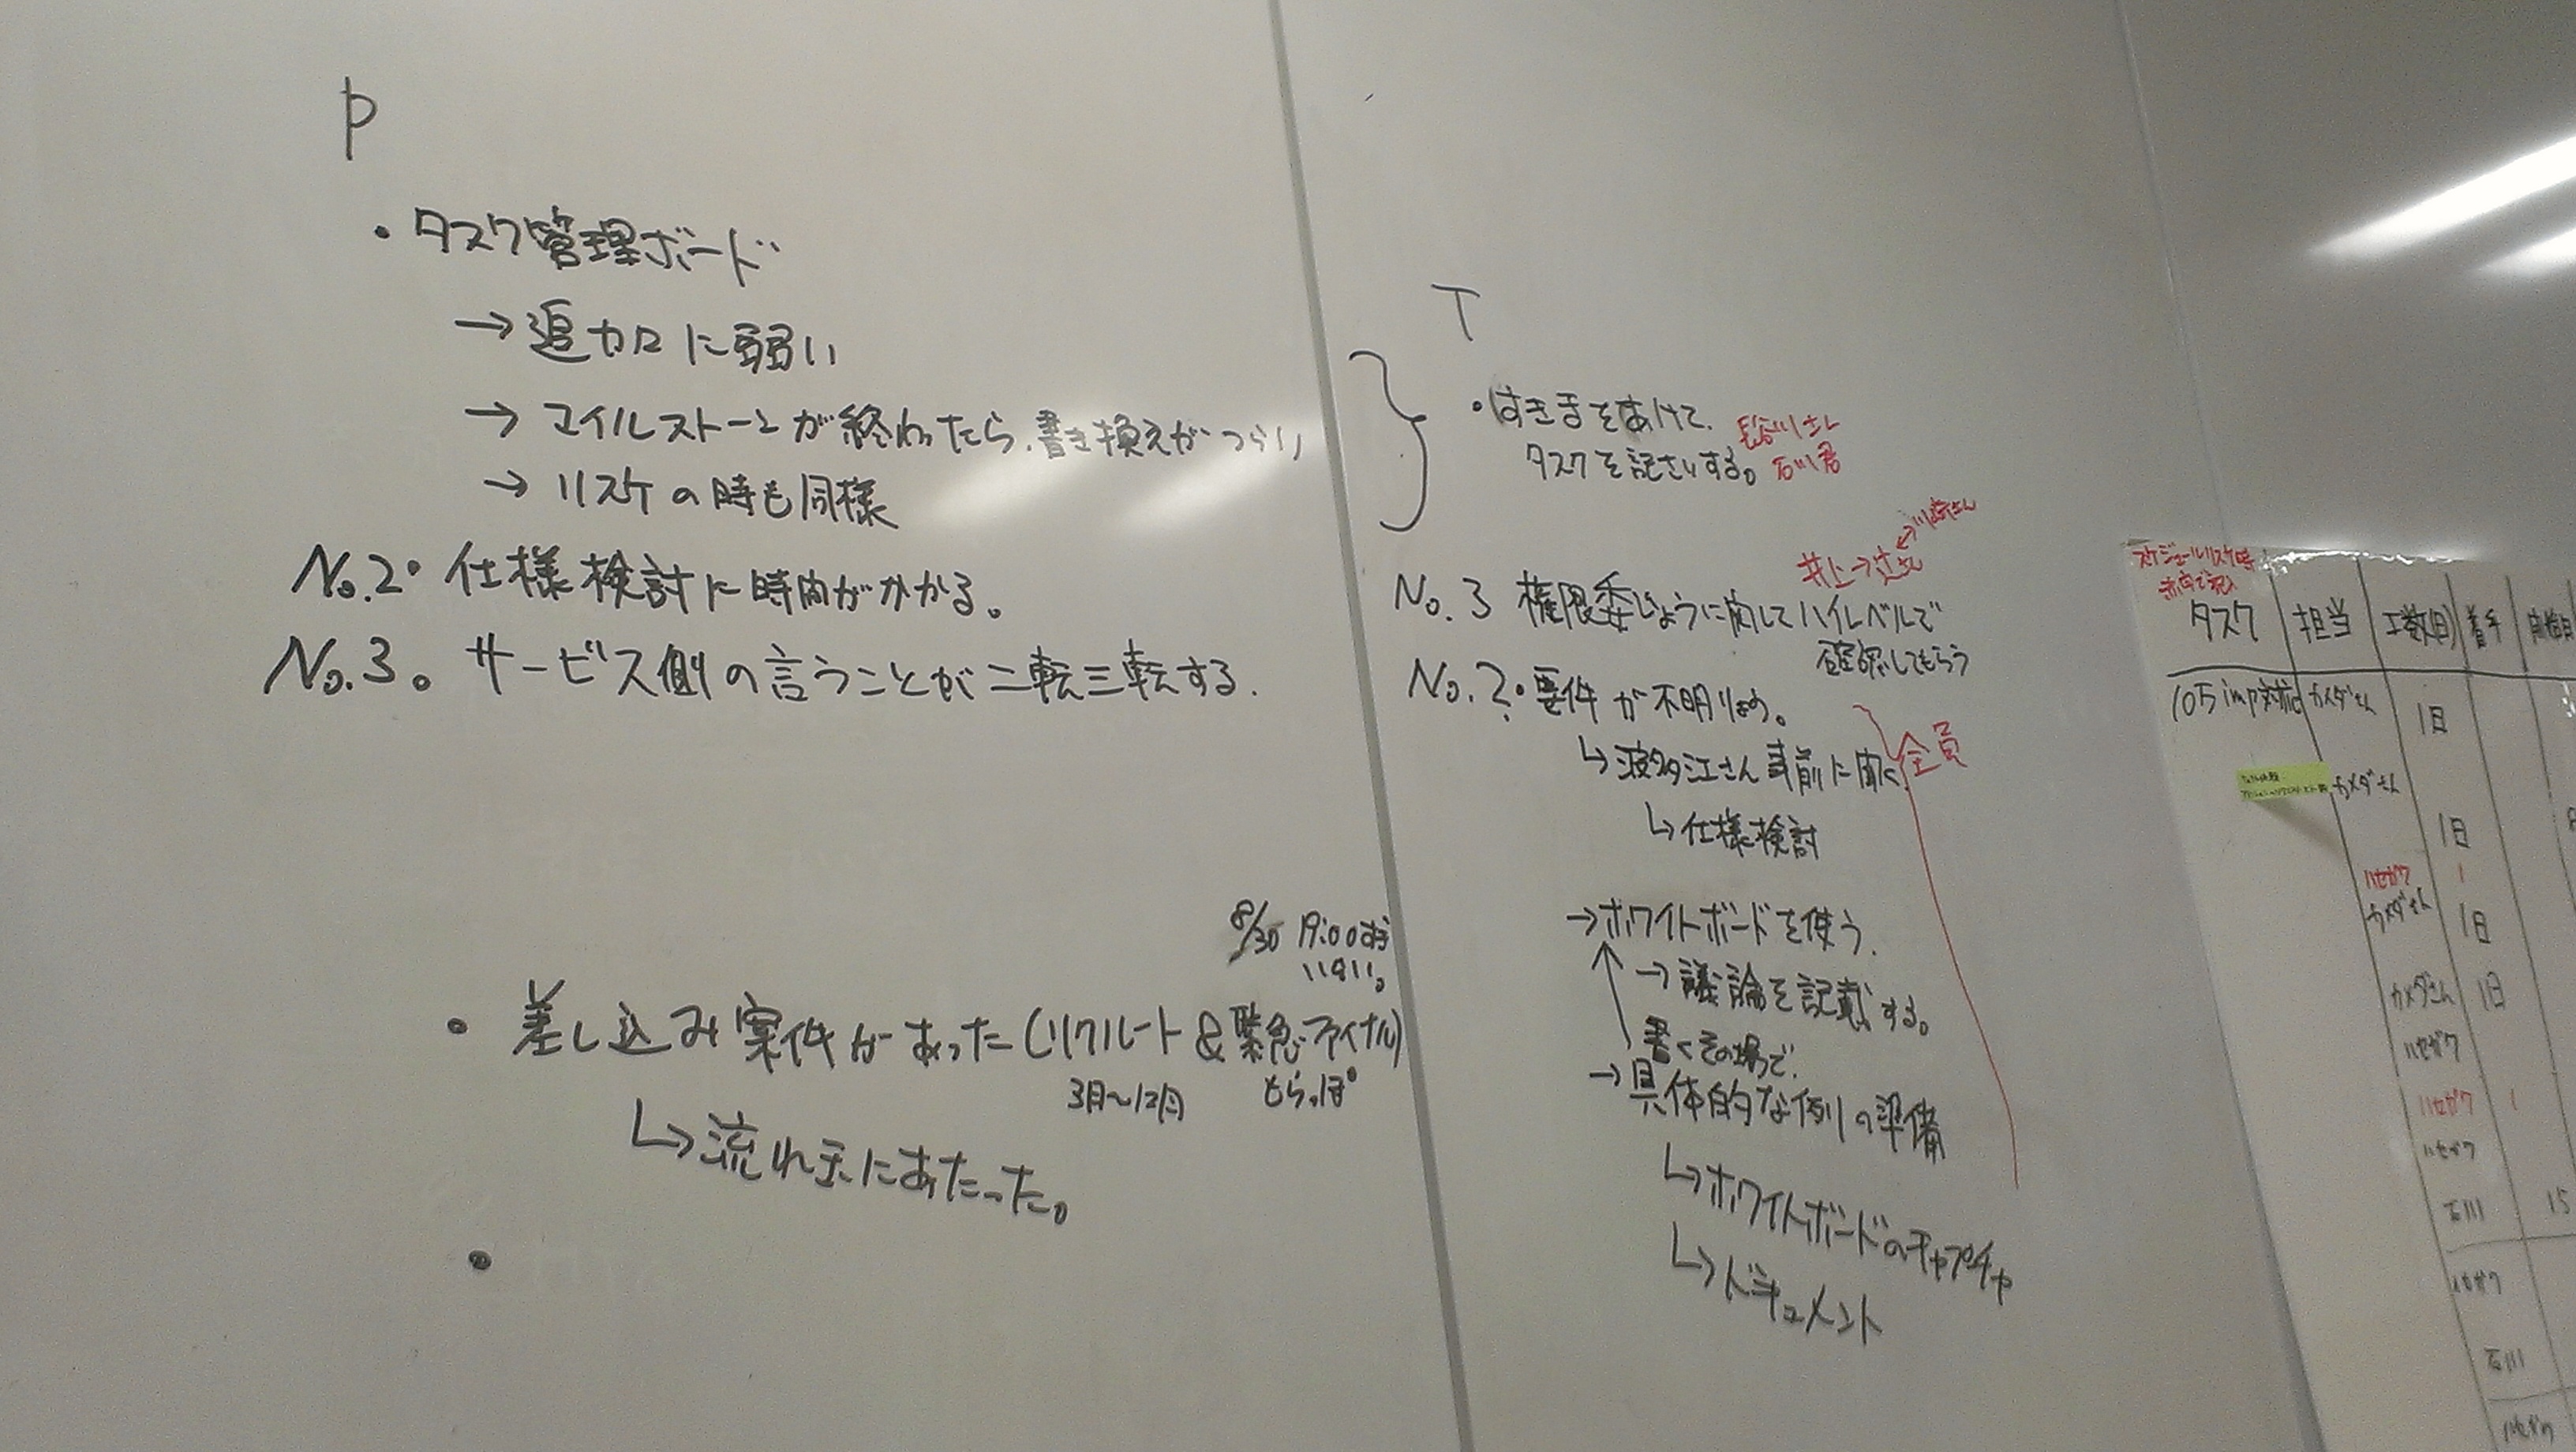 P
・タスク管理ボード
→追加に弱い
→マイルストーンが終わったら、書き換えがつらい
→リスケの時も同様
No.2・仕様検討に時間がかかる。
No.3。サービス側の言うことが二転三転する.
8/30 19:00すぎ
いない。
・差し込み案件があった(リクルート&緊急ファイナル)
3月〜12月
とらっぱ
↳流れ玉にあたった。
・
T
・すきまをあけて.
タスクを記さいする。
長谷川さん
石川君
川崎さん
井上→辻さん
No.3 権限委じょうに関してハイレベルで
確認してもらう
No.2・要件が不明りょう。
↳波多江さん事前に聞く
全員
↳仕様検討
→ホワイトボードを使う.
→議論を記載する。
書くその場で.
→具体的な例の準備
↳ホワイトボードのキャプチャ
↳ドキュメント
スケジュールリスケ時
赤字で記入
タスク 担当 工数(日) 着手 開始日
105imp対応 カメダさん 1日
カメダさん
1日
ハセガワ 1
カメダさん 1日
カメダさん 1日
ハセガワ
ハセガワ 1
ハセガワ
石川 15
ハセガワ
石川
ハセガワ